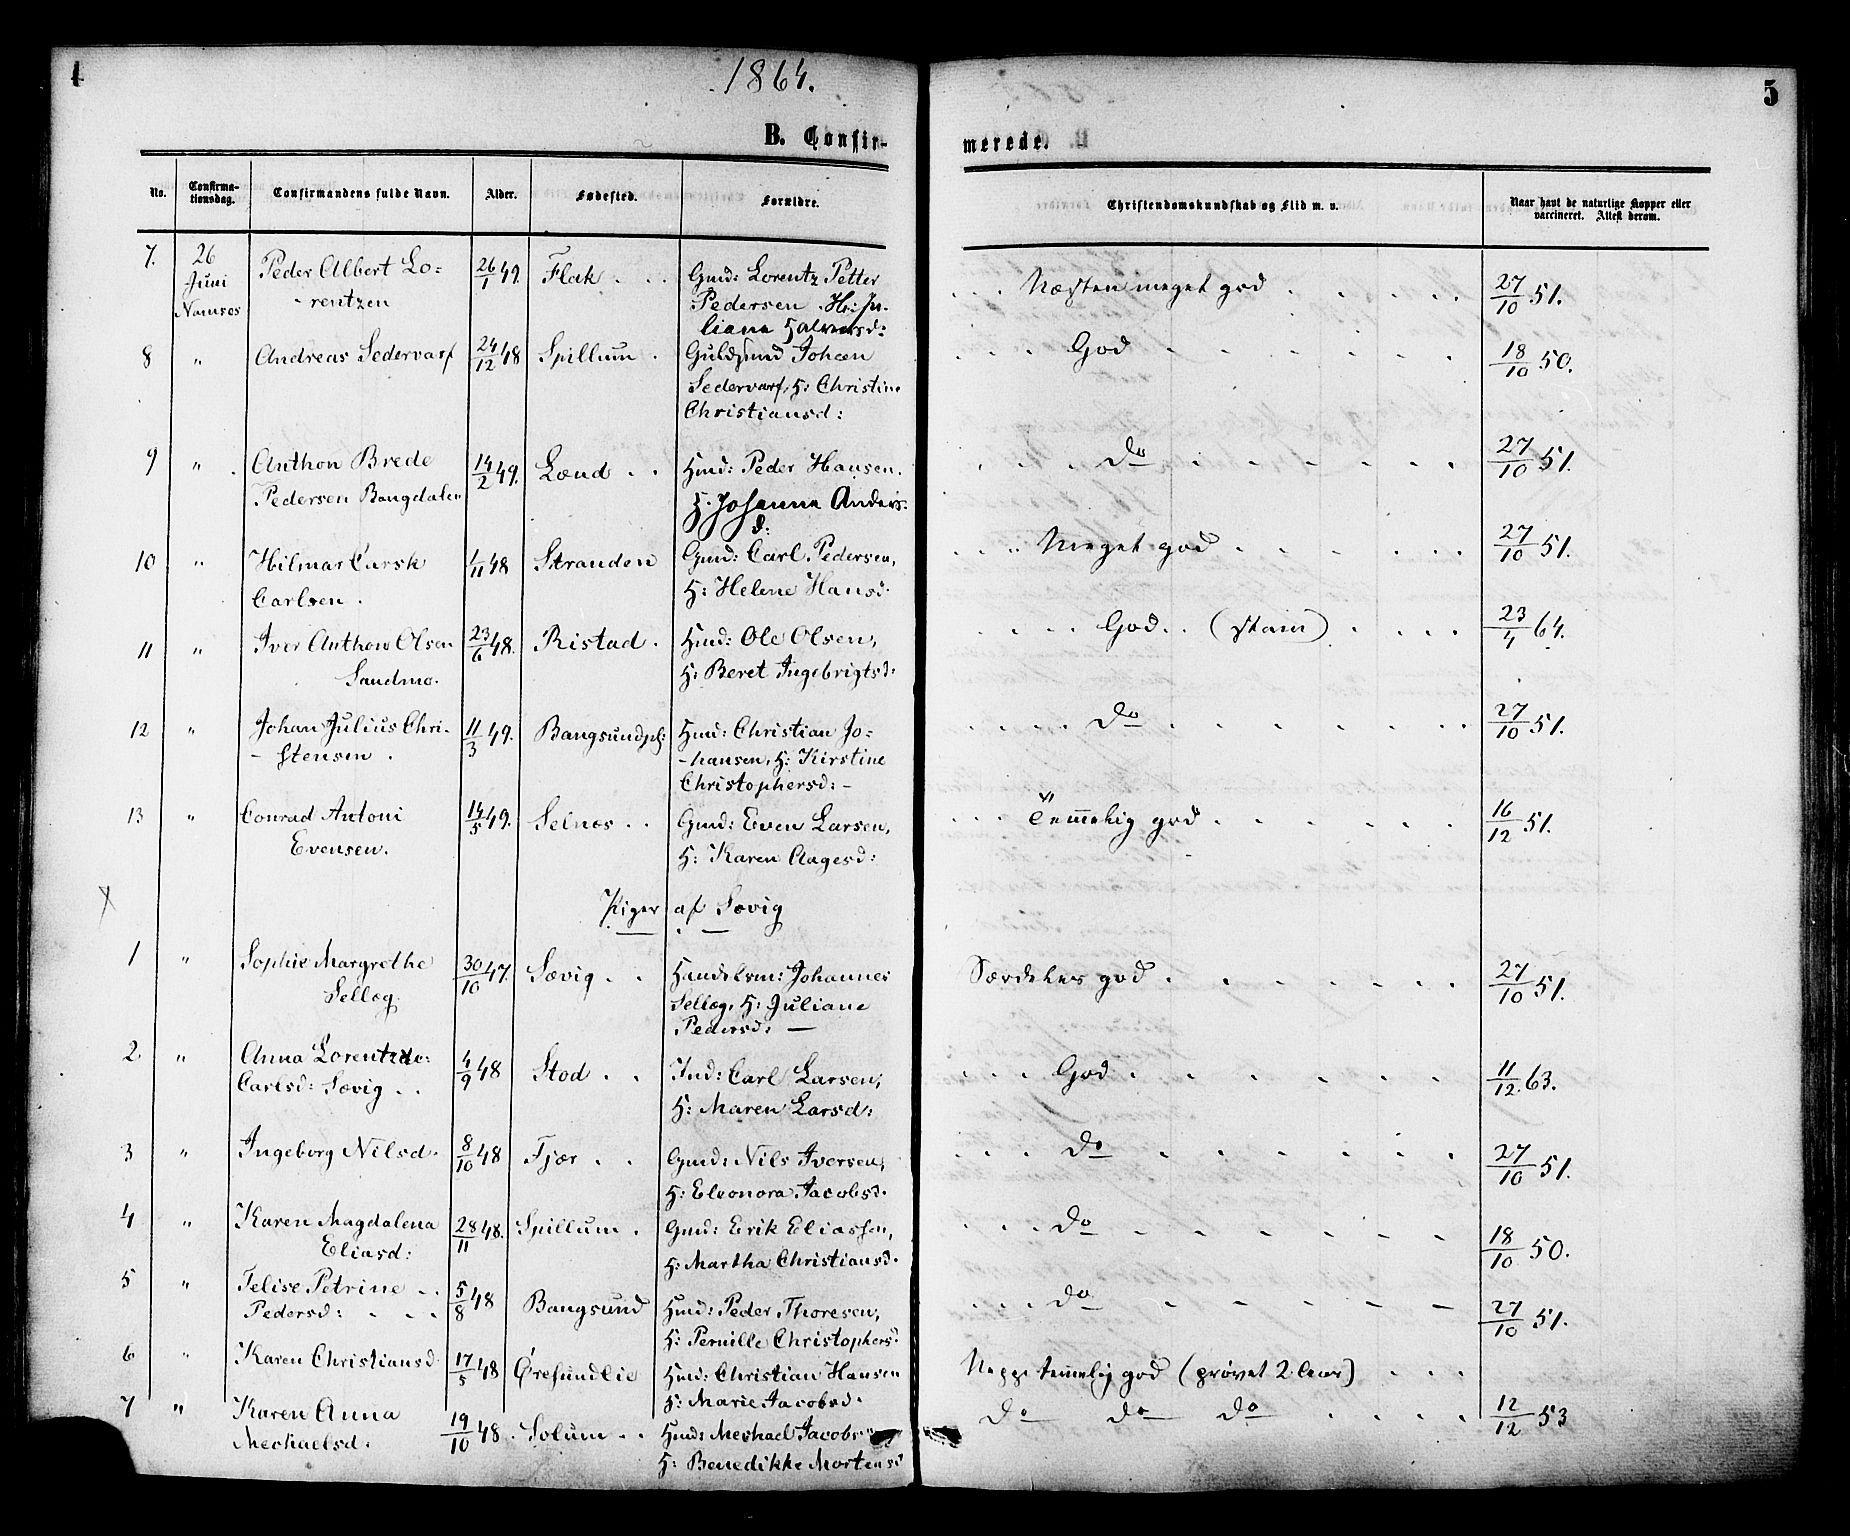 4
1864.
5
B. Confir-
merede.
No.
Confirma-
tionsdag.
Confirmandens fulde Navn.
Alder.
Fødested.
Forældre.
Christendomskundskab og Flid m. v.
Naar havt de naturlige Kopper eller
vaccineret. Attest derom.
7. 26 Peder Albert Lo= 26/1 49. Flak . . Gmd: Lorentz Petter . . . Næsten meget god . . . . . 27/10 51.
Juni - rentzen Pedersen . H: Ju-
Namsos liane Halvorsd:
8 " Andreas Sedervarf 24/12 48 Spillum . Guldsmd Johan . . . God . . . . . . 18/10 50.
Sedervarf, H: Christine
Christiansd:
9 " Anthon Brede 14/2 49. Lænd . . Hmd: Peder Hansen. . . . . do . . . . . . 27/10 51.
Pedersen Bangdalen H. Johanna Anders-
d:
10 " Hilmar Cursk 1/11 48 Stranden Gmd: Carl Pedersen, . . . Meget god . . . . . . 27/10 51.
Carlsen . H: Helene Hansd.
11 " Iver Anthon Olsen 23/6 48. Ristad . Hmd: Ole Olsen, . . . . God . . (stam) . . . . 23/4 64.
Sandmo. H: Beret Ingebrigtsd:
12 " Johan Julius Chri- 11/3 49. Bangsundpl: Hmd: Christian Jo= . . . . do . . . . . . 27/10 51.
- stensen . -hansen, H: Kirstine
Christophersd: -
13 " Conrad Antoni 14/5 49. Selnes . . Gmd: Even Larsen, . . . Temmelig god . . . . . . 16/12 51.
Evensen. H: Karen Aagesd:
Piger af Sævig
1 " Sophie Margrethe 30/10 47. Sævig . . Handelsm: Johannes Særdeles god . . . . . . 27/10 51.
Selleg. Selleg, H: Juliane
Pedersd: -
2. " Anna Lorentze 4/9 48 Stod . . Ind: Carl Larsen, . . . God . . . . . . 11/12 63.
Carlsd: Sævig . . H: Maren Larsd:
3 " Ingeborg Nilsd. 8/10 48 Fjær . . Gmd: Nils Iversen, . . . do . . . . . . 27/10 51.
H: Eleonora Jacobsd.
4 " Karen Magdalena 28/11 48. Spillum . Gmd: Erik Eliassen, . . . do . . . . . . 18/10 50.
Eliasd: H: Martha Christiansd.
5 " Felise Petrine . . 5/8 48 Bangsund Hmd: Peder Thoresen, . . . do . . . . . . 27/10 51.
Pedersd: . . . H: Pernille Christophersd
6 " Karen Christiansd. 17/5 48 Øresundlie Hmd: Christian Hansen Neppe temmelig god (prøvet 2. Aar) . . .
H: Marie Jacobsd.
7 " Karen Anna 19/10 48 . Solum . . Hmd: Mechael Jacobs do do do . . . . 12/12 53
Mechaelsd. H: Benedikke Mortensd